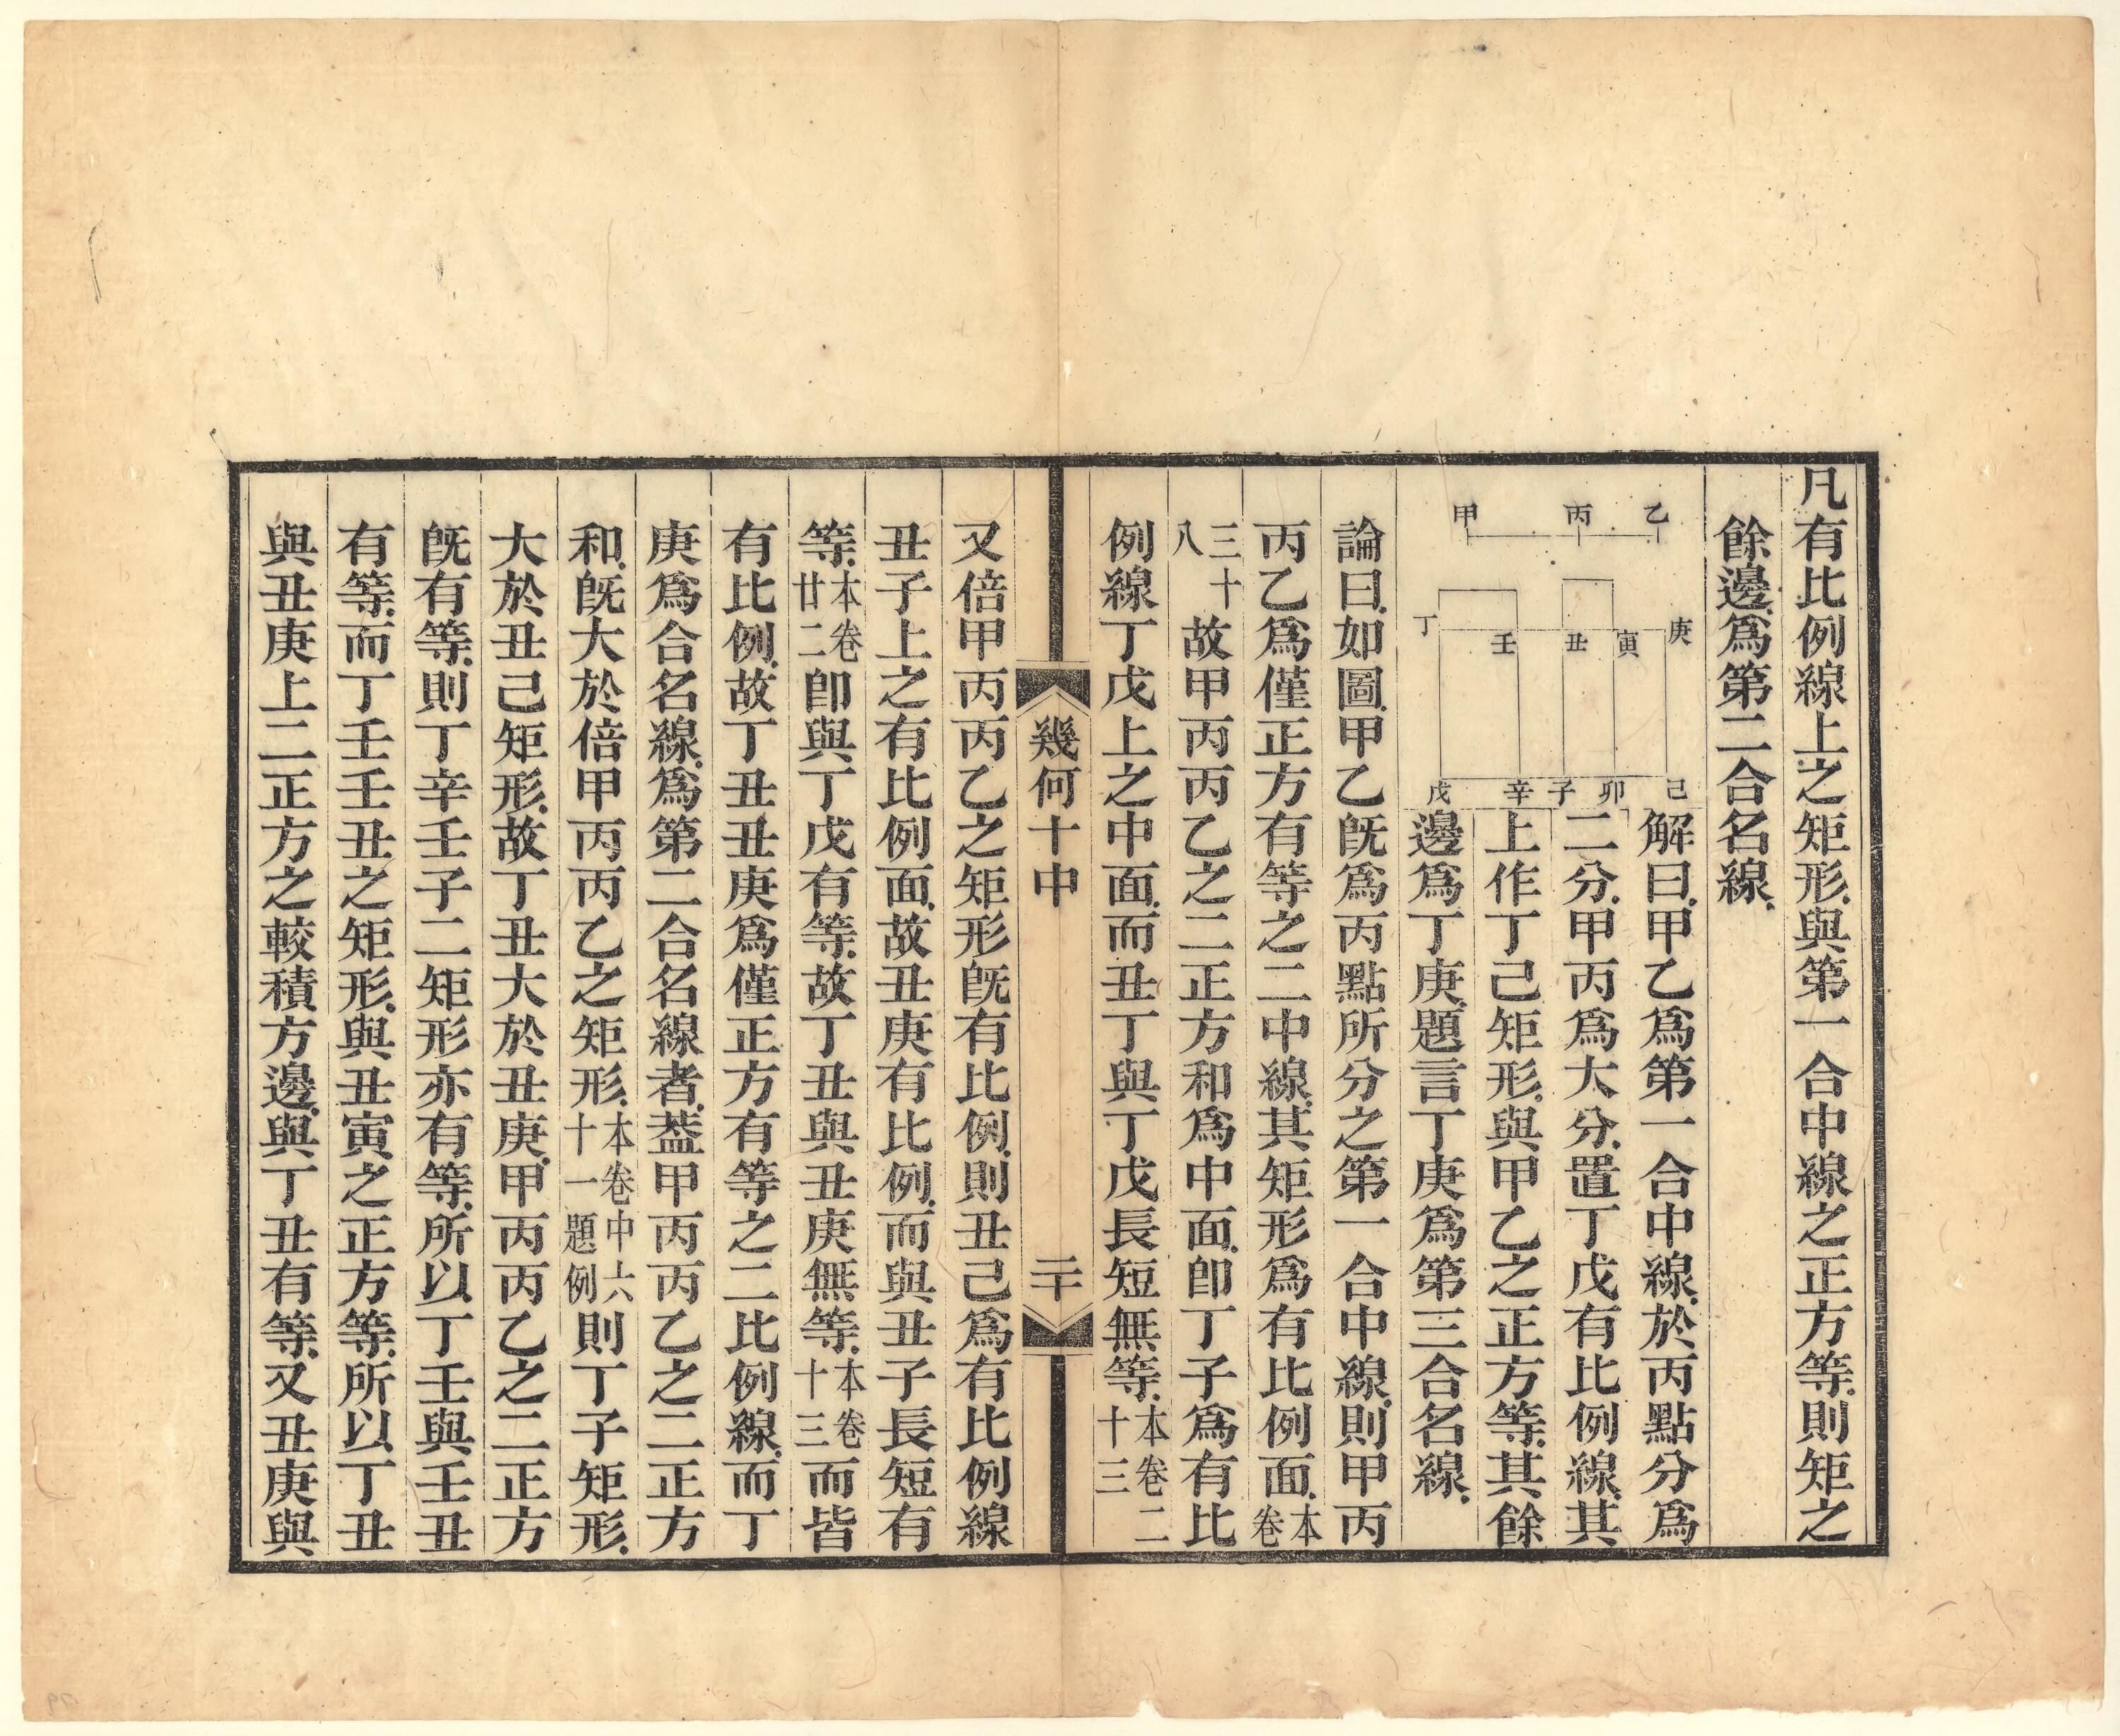 凡有比例線上之矩形、與第一合中線之正方等、則矩之
餘邊、爲第二合名線、
乙 丙 甲
庚 寅 丑 壬 丁
己 卯 子 辛 戊
解曰、甲乙爲第一合中線、於丙點分爲
二分、甲丙爲大分、置丁戊有比例線、其
上作丁己矩形、與甲乙之正方等、其餘
邊爲丁庚、題言丁庚爲第三合名線、
論曰、如圖、甲乙旣爲丙點所分之第一合中線、則甲丙
丙乙爲僅正方有等之二中線、其矩形爲有比例面、本卷
三十八故甲丙丙乙之二正方和爲中面、卽丁子爲有比
例線丁戊上之中面、而丑丁與丁戊長短無等、本卷二十三
幾何十中
二十
又倍甲丙丙乙之矩形旣有比例、則丑己爲有比例線
丑子上之有比例面、故丑庚有比例、而與丑子長短有
等、本卷廿二卽與丁戊有等、故丁丑與丑庚無等、本卷十三而皆
有比例、故丁丑丑庚爲僅正方有等之二比例線、而丁
庚爲合名線、爲第二合名線者、葢甲丙丙乙之二正方
和、旣大於倍甲丙丙乙之矩形、本卷中六十一題例則丁子矩形、
大於丑己矩形、故丁丑大於丑庚、甲丙丙乙之二正方
旣有等、則丁辛壬子二矩形亦有等、所以丁壬與壬丑
有等、而丁壬壬丑之矩形、與丑寅之正方等、所以丁丑
與丑庚上二正方之較積方邊、與丁丑有等、又丑庚與